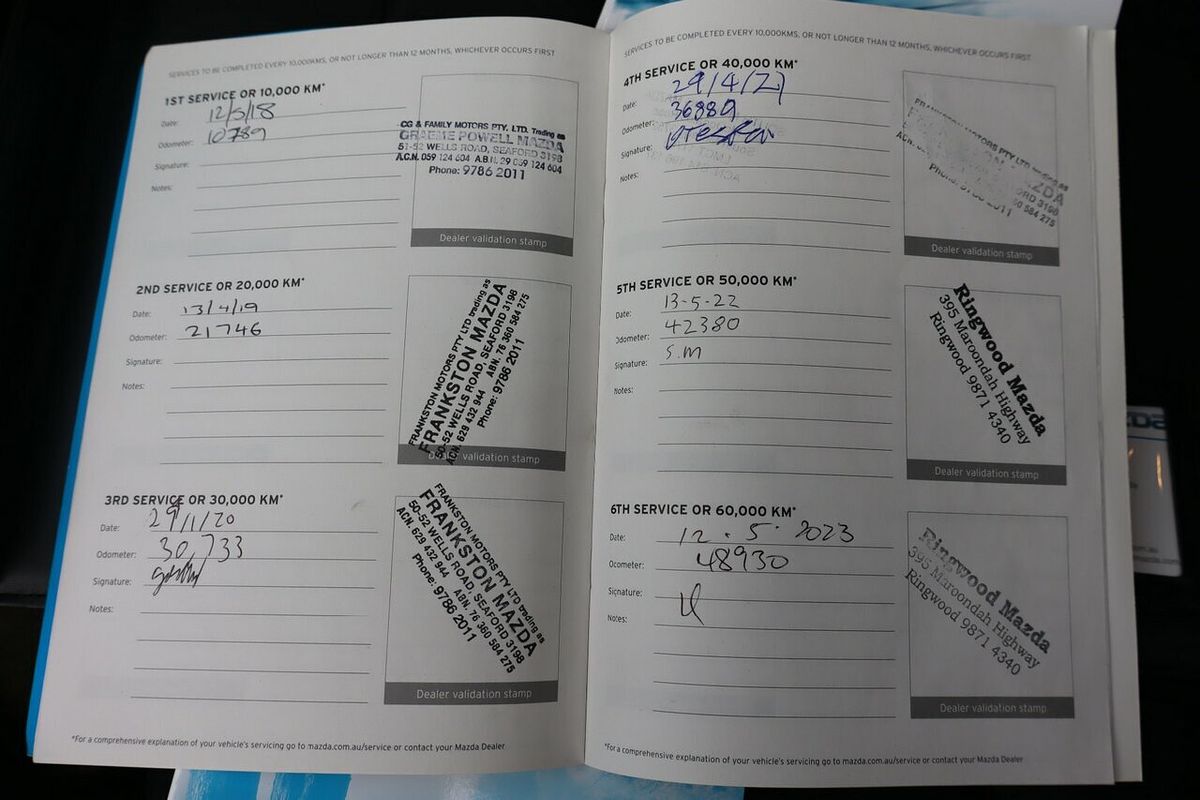 SERVICES TO BE COMPLETED EVERY 10,000KMS, OR NOT LONGER THAN 12 MONTHS, WHICHEVER OCCURS FIRST
1ST SERVICE OR 10,000 KM*
Date: 12/5/18
Odometer: 10789
Signature:
Notes:
CG & FAMILY MOTORS PTY. LTD. Trading as
GRAEME POWELL MAZDA
51-52 WELLS ROAD, SEAFORD 3198
A.C.N. 059 124 604 A.B.N. 29 059 124 604
Phone: 9786 2011
Dealer validation stamp
2ND SERVICE OR 20,000 KM*
Date: 13/4/19
Odometer: 21746
Signature:
Notes:
FRANKSTON MOTORS PTY LTD trading as
FRANKSTON MAZDA
50-52 WELLS ROAD, SEAFORD 3198
ACN. 629 432 944 ABN. 76 360 584 275
Phone: 9786 2011
Dealer validation stamp
3RD SERVICE OR 30,000 KM*
Date: 29/1/20
Odometer: 30,733
Signature:
Notes:
FRANKSTON MOTORS PTY LTD trading as
FRANKSTON MAZDA
50-52 WELLS ROAD, SEAFORD 3198
ACN. 629 432 944 ABN. 76 360 584 275
Phone: 9786 2011
Dealer validation stamp
*For a comprehensive explanation of your vehicle's servicing go to mazda.com.au/service or contact your Mazda Dealer
SERVICES TO BE COMPLETED EVERY 10,000KMS, OR NOT LONGER THAN 12 MONTHS, WHICHEVER OCCURS FIRST
4TH SERVICE OR 40,000 KM*
Date: 29/4/21
Odometer: 36889
Signature:
Notes:
MOTORS PTY LTD trading as
MAZDA
3198
584 275
Dealer validation stamp
5TH SERVICE OR 50,000 KM*
Date: 13-5-22
Odometer: 42380
Signature: S.M
Notes:
Ringwood Mazda
395 Maroondah Highway
Ringwood 9871 4340
Dealer validation stamp
6TH SERVICE OR 60,000 KM*
Date: 12.5.2023
Odometer: 48930
Signature:
Notes:
Ringwood Mazda
395 Maroondah Highway
Ringwood 9871 4340
Dealer validation stamp
*For a comprehensive explanation of your vehicle's servicing go to mazda.com.au/service or contact your Mazda Dealer